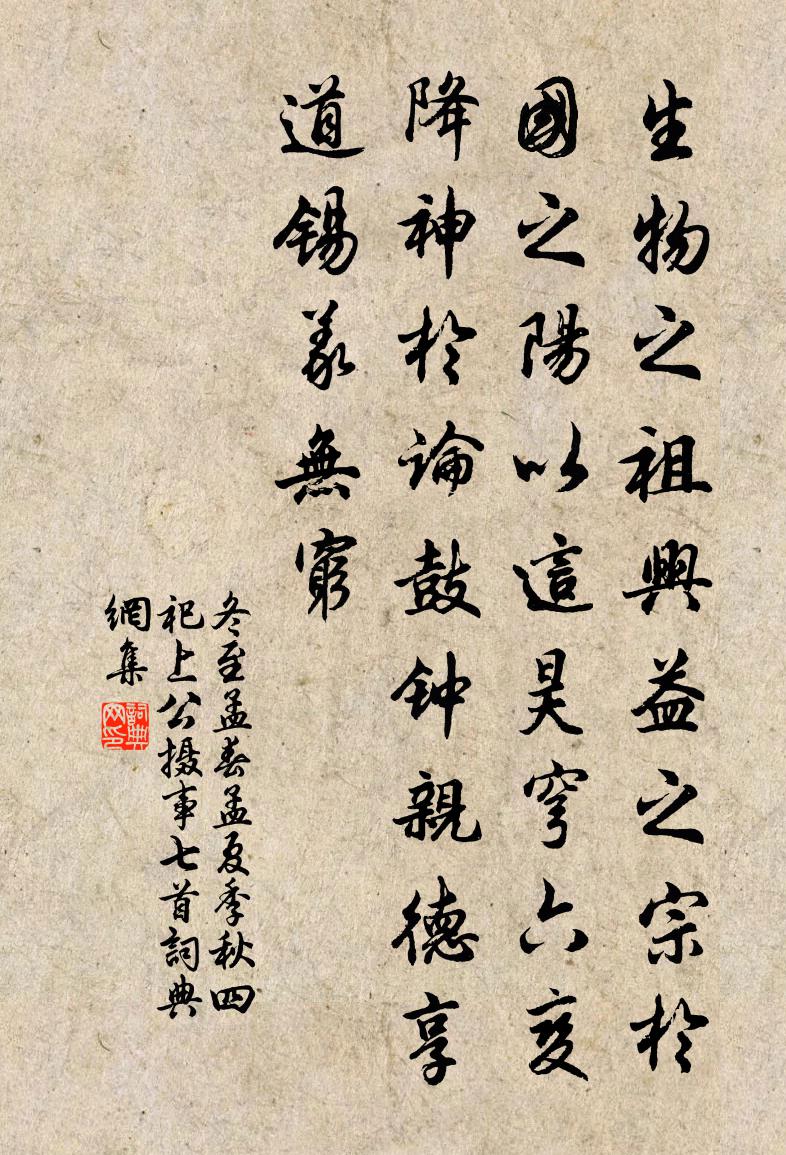 生物之祖興益之宗於
國之陽以這昊穹六变
降神於論鼓钟親德享
道锡羡無窮
冬至孟春孟夏季秋四
祀上公摄事七首詞典
網集
詞典
网印